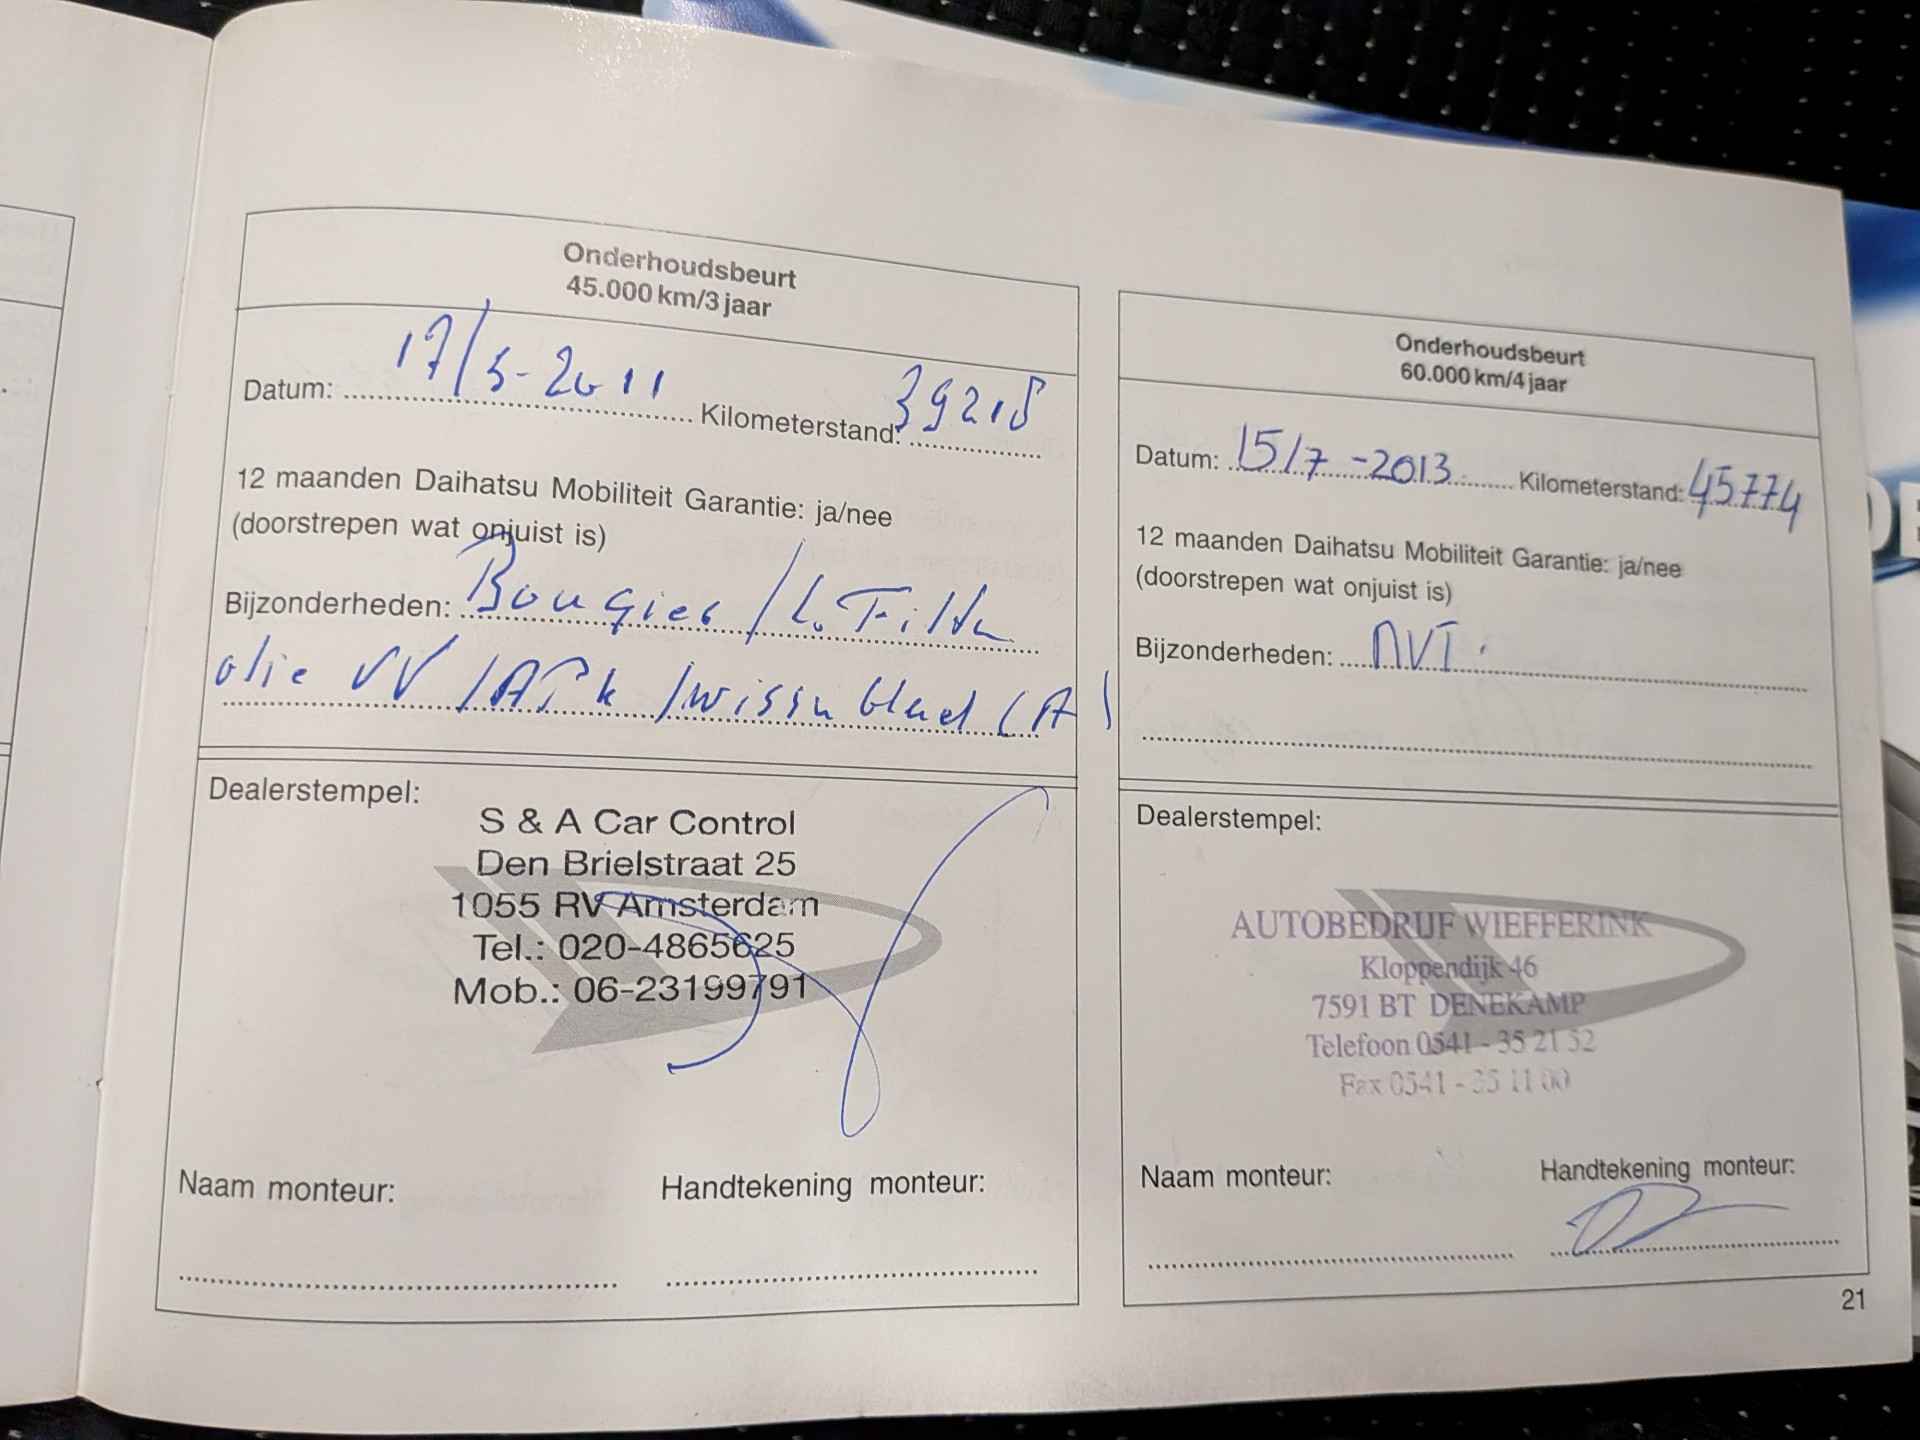 Onderhoudsbeurt
45.000 km/3 jaar
Datum: 17/5-2011 Kilometerstand: 39218
12 maanden Daihatsu Mobiliteit Garantie: ja/nee
(doorstrepen wat onjuist is)
Bijzonderheden: Bougies / L. Filter
olie VV / APk / wisser blad (A)
Dealerstempel:
S & A Car Control
Den Brielstraat 25
1055 RV Amsterdam
Tel.: 020-4865625
Mob.: 06-23199791
Naam monteur: Handtekening monteur:
Onderhoudsbeurt
60.000 km/4 jaar
Datum: 15/7-2013 Kilometerstand: 45774
12 maanden Daihatsu Mobiliteit Garantie: ja/nee
(doorstrepen wat onjuist is)
Bijzonderheden: NVT.
Dealerstempel:
AUTOBEDRIJF WIEFFERINK
Kloppendijk 46
7591 BT DENEKAMP
Telefoon 0541 - 35 21 52
Fax 0541 - 35 11 00
Naam monteur: Handtekening monteur:
21